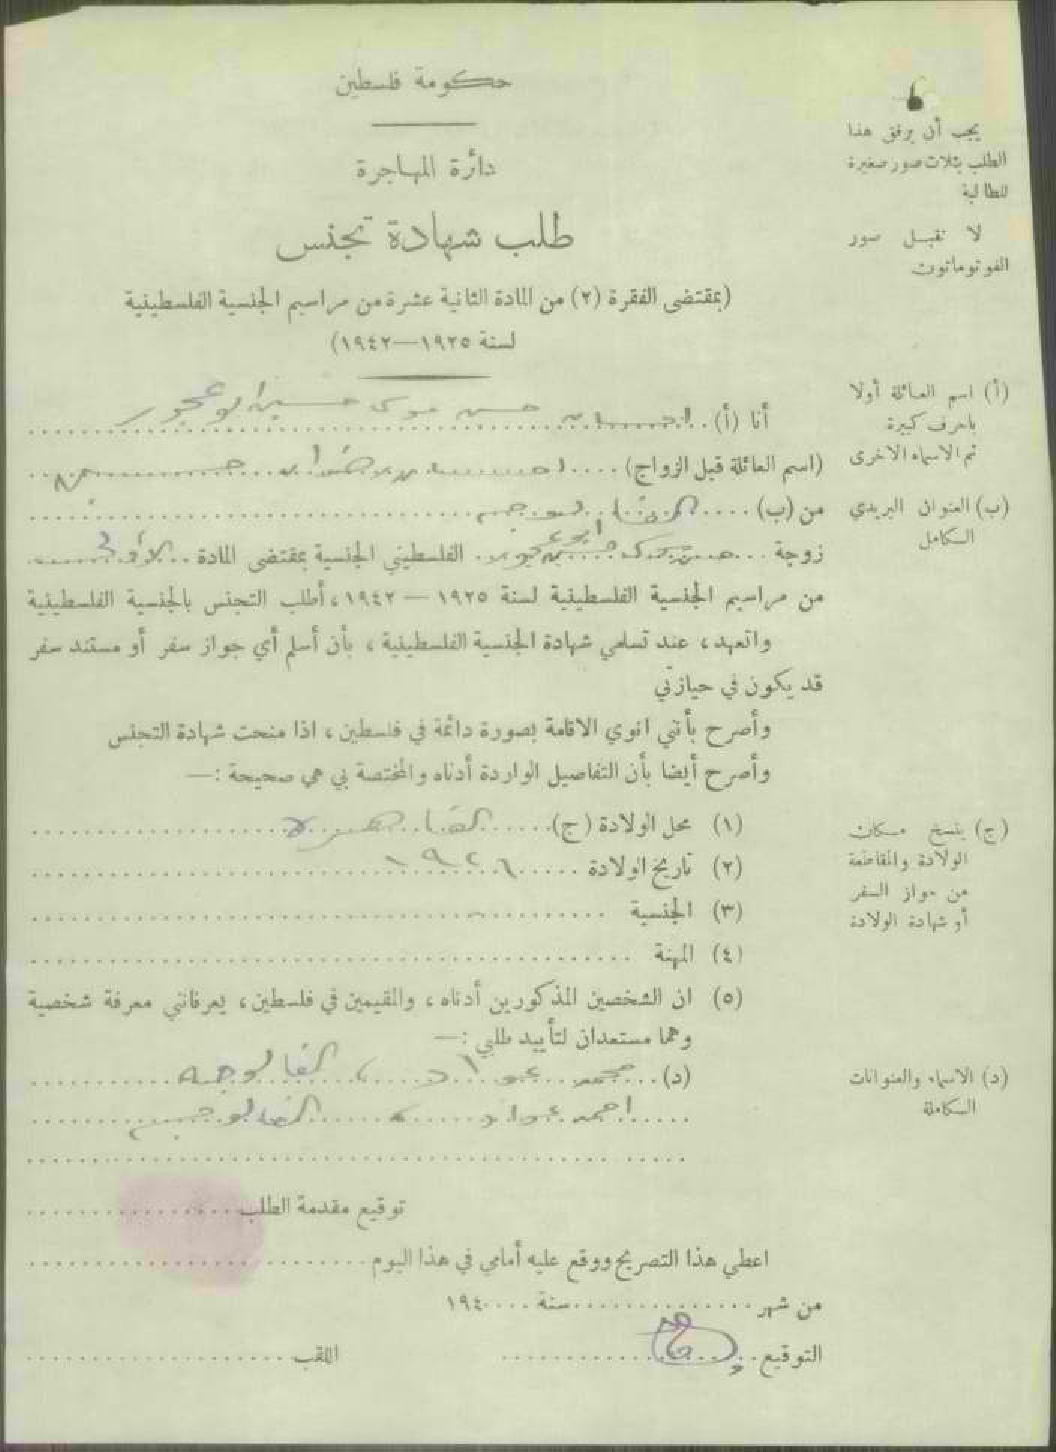 حكومة فلسطين
دائرة المهاجرة
طلب شهادة تجنس
(بمقتضى الفقرة (٢) من المادة الثانية عشرة من مراسيم الجنسية الفلسطينية
لسنة ١٩٢٥—١٩٤٢)
يجب أن يرفق هذا
الطلب بثلاث صور صغيرة
للطالبة
لا تقبل صور
الفوتوماتون
(أ) اسم العائلة أولا
باحرف كبيرة
ثم الاسماء الاخرى
أنا (أ) حسن موسى حسين ابو عجور
(اسم العائلة قبل الزواج)
(ب) العنوان البريدي
الكامل
من (ب) الفالوجه
زوجة الفلسطيني الجنسية بمقتضى المادة الأولى
من مراسيم الجنسية الفلسطينية لسنة ١٩٢٥—١٩٤٢، أطلب التجنس بالجنسية الفلسطينية
واتعهد، عند تسلمي شهادة الجنسية الفلسطينية، بأن أسلم أي جواز سفر أو مستند سفر
قد يكون في حيازتي
وأصرح بأنني انوي الاقامة بصورة دائمة في فلسطين، اذا منحت شهادة التجنس
وأصرح أيضا بأن التفاصيل الواردة أدناه والمختصة بي هي صحيحة :—
(ج) ينسخ مكان
الولادة والمقاطعة
من جواز السفر
أو شهادة الولادة
(١) محل الولادة (ج) القاهرة
(٢) تاريخ الولادة ١٩٢٦
(٣) الجنسية
(٤) المهنة
(٥) ان الشخصين المذكورين أدناه، والمقيمين في فلسطين، يعرفانني معرفة شخصية
وهما مستعدان لتأييد طلبي :—
(د) الاسماء والعنوانات
الكاملة
(د) محمد عواد، الفالوجه
احمد عواد الفالوجه
توقيع مقدمة الطلب
اعطي هذا التصريح ووقع عليه أمامي في هذا اليوم
من شهر سنة ١٩٤٠
التوقيع اللقب